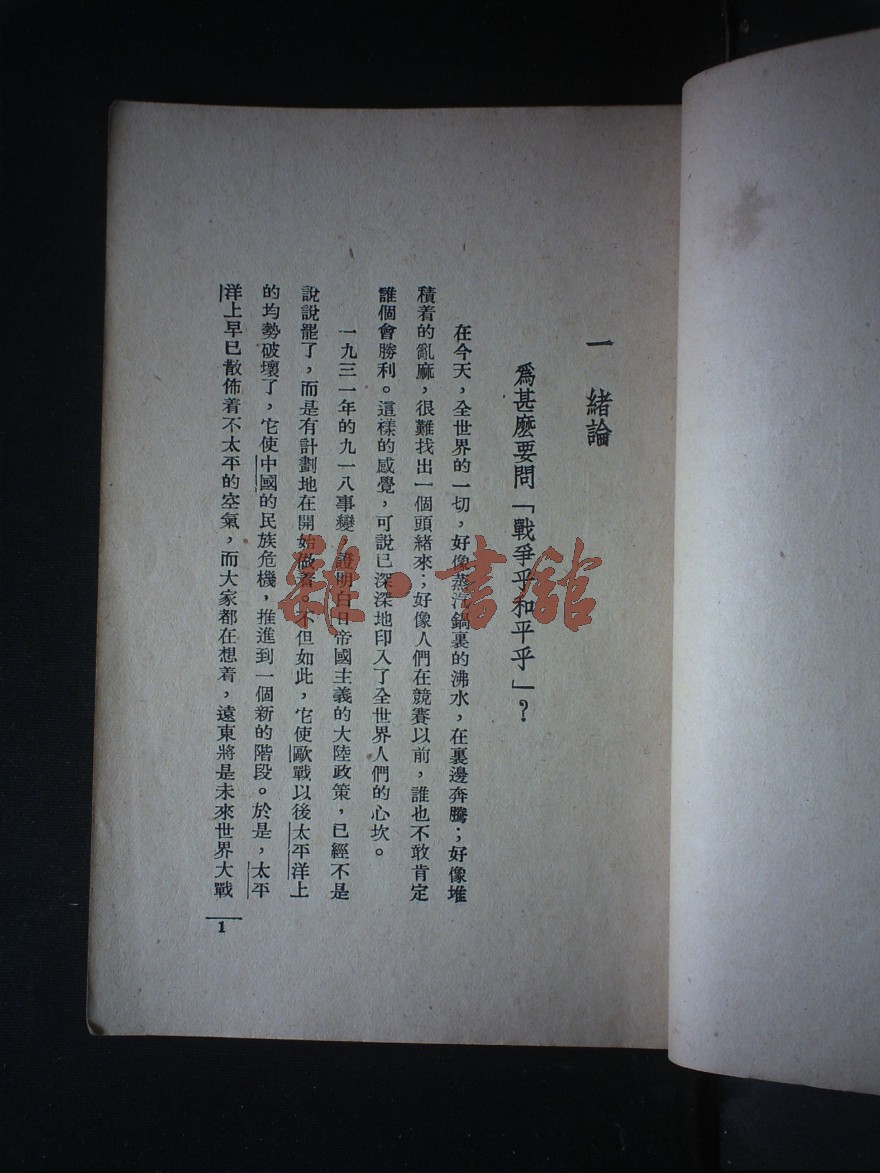 一 緒論
爲甚麽要問「戰爭乎和平乎」?
在今天，全世界的一切，好像蒸汽鍋裏的沸水，在裏邊奔騰；好像堆
積着的亂麻，很難找出一個頭緒來；好像人們在競賽以前，誰也不敢肯定
誰個會勝利。這樣的感覺，可說已深深地印入了全世界人們的心坎。
一九三一年的九一八事變，證明白日帝國主義的大陸政策，已經不是
說說罷了，而是有計劃地在開始做着。不但如此，它使歐戰以後太平洋上
的均勢破壞了，它使中國的民族危機，推進到一個新的階段。於是，太平
洋上早已散佈着不太平的空氣，而大家都在想着，遠東將是未來世界大戰
1
雜·書館